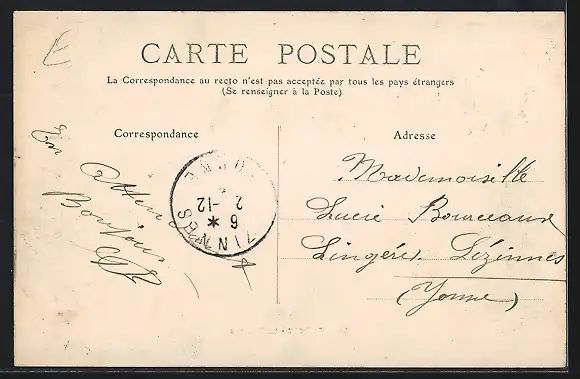 E
CARTE POSTALE
La Correspondance au recto n'est pas acceptée par tous les pays étrangers
(Se renseigner à la Poste)
Correspondance
Adresse
En
Bonjour
6 *
2 -12
Mademoiselle
Lucie
Lingère. Lézinnes
(Yonne)